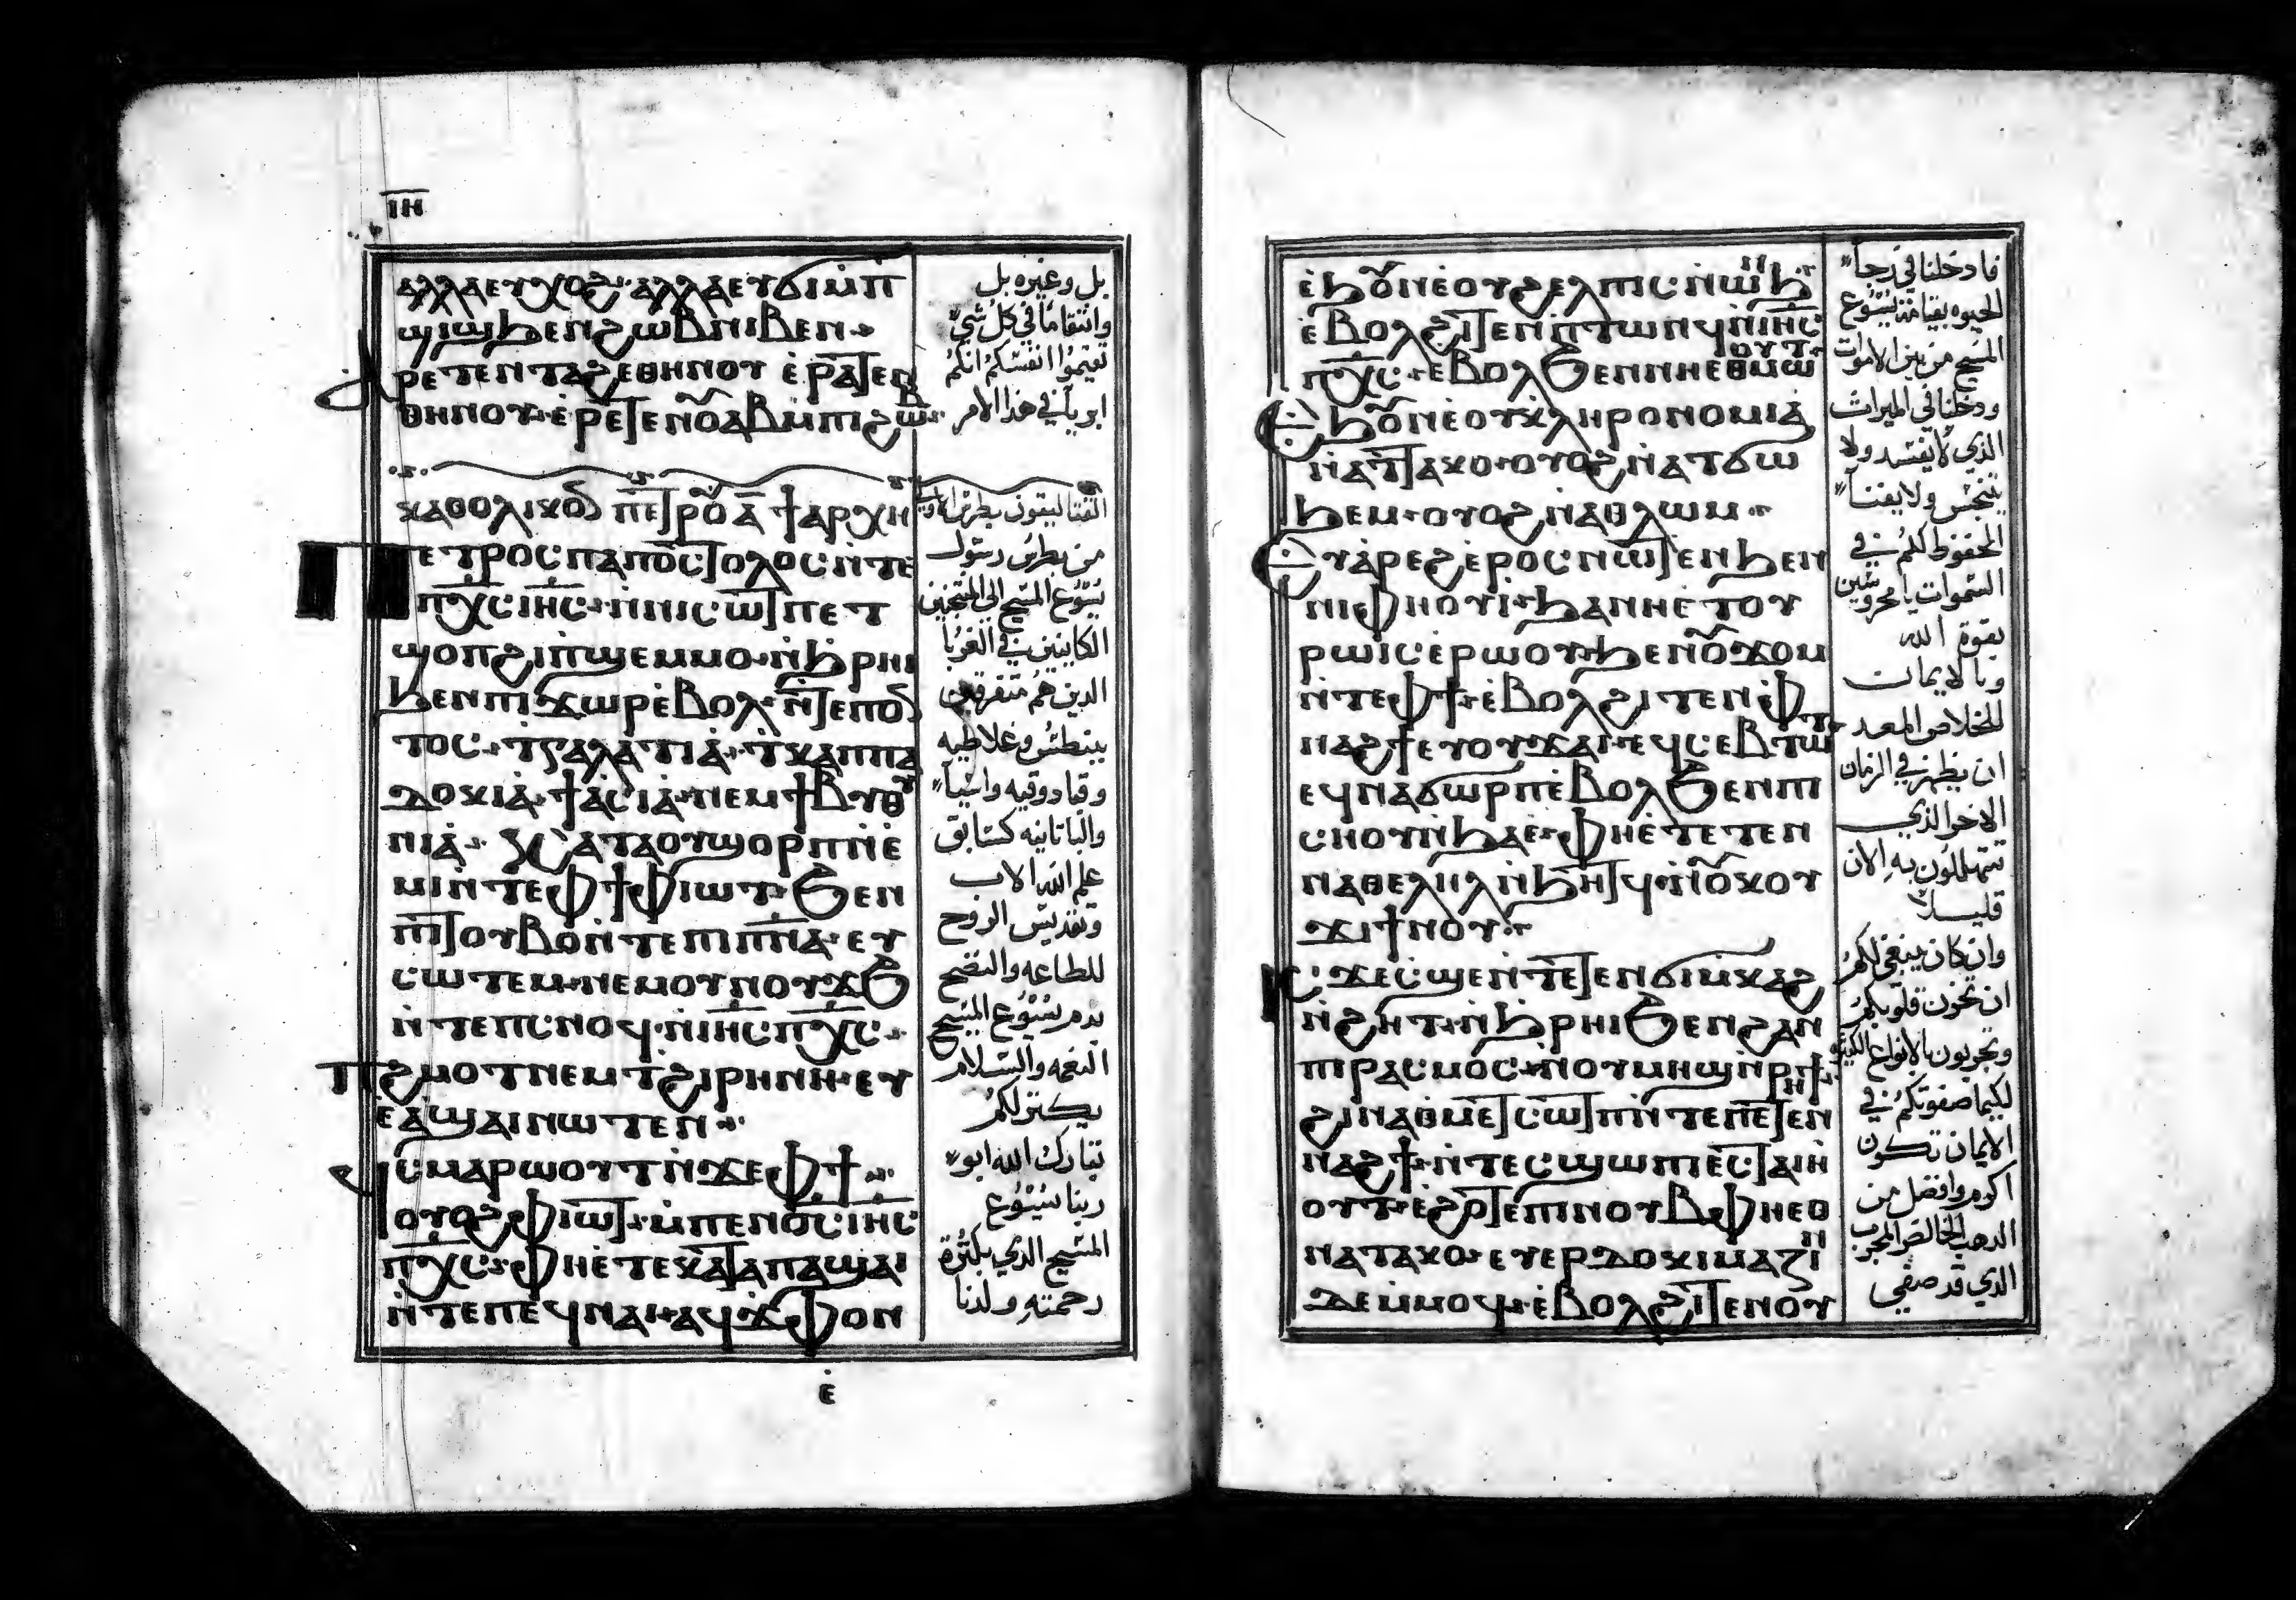 ⲓⲏ
ⲁⲗⲗⲁⲉⲩⲭⲟϩ ⲁⲗⲗⲁⲉⲩϭⲓⲙ̀ⲡ̀
ϣⲓϣϧⲉⲛϩⲱⲃⲛⲓⲃⲉⲛ
ⲁⲣⲉⲧⲉⲛⲧⲁϩⲉⲑⲏⲛⲟⲩ ⲉ̀ⲣⲁⲧⲉⲛ
ⲑⲏⲛⲟⲩ ⲉ̀ⲣⲉⲧⲉⲛⲟ̄ⲁⲃⲙ̀ⲡⲓϩⲱⲃ
ⲕⲁⲑⲟⲗⲓⲕⲟⲛ ⲡⲉⲧⲣⲟⲩ ⲁ̅ ϯⲁⲣⲭⲏ
ⲡⲉⲧⲣⲟⲥⲡⲁⲡⲟⲥⲧⲟⲗⲟⲥⲛ̀ⲧⲉ
ⲡⲭ̅ⲥ̅ⲓⲏ̅ⲥ̅ ⲛ̀ⲛⲓⲥⲱⲧⲡⲉⲧ
ϣⲟⲡϩⲓⲡ̀ϣⲉⲙⲙⲟ ⲛ̀ϧⲣⲏⲓ
ϧⲉⲛⲡⲓϫⲱⲣⲉ̀ⲃⲟⲗ ⲛ̀ⲧⲉⲡⲟⲛ
ⲧⲟⲥ ⲧⲅⲁⲗⲁⲧⲓⲁ̀ ⲧ̀ⲕⲁⲡⲡⲁ
ⲇⲟⲕⲓⲁ̀ ϯⲁ̀ⲥⲓⲁ̀ ⲛⲉⲙϯⲃⲩⲑⲩ
ⲛⲓⲁ̀ ⲕⲁⲧⲁⲟⲩϣⲟⲣⲡⲛ̀ⲉ̀
ⲙⲓⲛ̀ⲧⲉⲫϯⲫⲓⲱⲧ ϧⲉⲛ
ⲡⲓⲧⲟⲩⲃⲟⲛ̀ⲧⲉⲡⲓⲡ̅ⲛ̅ⲁ̅ ⲉⲩ
ⲥⲱⲧⲉⲙ ⲛⲉⲙⲟⲩⲛⲟⲩϫϧ
ⲛ̀ⲧⲉⲡⲥⲛⲟϥ ⲛ̀ⲓⲏ̅ⲥ̅ⲡⲭ̅ⲥ̅
ⲡϩⲙⲟⲧⲛⲉⲙⲧϩⲓⲣⲏⲛⲏ ⲉⲩ
ⲉ̀ⲁ̀ϣⲁⲓⲛⲱⲧⲉⲛ
ϥⲥⲙⲁⲣⲱⲟⲩⲧⲛ̀ϫⲉⲫϯ
ⲟⲩⲟϩⲫⲓⲱⲧ ⲙ̀ⲡⲉⲛⲟ̅ⲥ̅ⲓⲏ̅ⲥ̅
ⲡⲭ̅ⲥ̅ ⲫⲏⲉ̀ⲧⲉⲕⲁⲧⲁⲡⲁϣⲁⲓ
ⲛ̀ⲧⲉⲡⲉϥⲛⲁⲓ ⲁϥϫⲫⲟⲛ
ⲉ̀
بل وغيره بل
وانتقاما في كل شي
تقيموا انفسكم انكم
ابريا في هذا الامر
القتاليقون بطرس الاوله
من بطرس رسول
يسوع المسيح الي المنتجبين
الكاينين في الغربا
الدين هم متفرقين
ببنطس وغلاطيه
وقبادوقيه واسيا
والباتانيه كسابق
علم الله الاب
وتقديس الروح
للطاعه والنضح
بدم يسوع المسيح
النعمه والسلام
يكتر لكم
تبارك الله ابو
ربنا يسوع
المسيح الذي بكثرة
رحمته ولدنا
ⲉ̀ϧⲟⲩⲛⲉ̀ⲟⲩϩⲉⲗⲡⲓⲥⲛ̀ⲱⲛϧ
ⲉ̀ⲃⲟⲗϩⲓⲧⲉⲛⲡ̀ⲧⲱⲛϥⲛ̀ⲓⲏ̅ⲥ̅
ⲡⲭ̅ⲥ̅ ⲉⲃⲟⲗϧⲉⲛⲛⲏⲉⲑⲙⲱⲟⲩⲧ
ⲉϧⲟⲩⲛⲉ̀ⲟⲩⲕ̀ⲗⲏⲣⲟⲛⲟⲙⲓⲁ̀
ⲛ̀ⲁⲧⲧⲁⲕⲟ ⲟⲩⲟϩⲛ̀ⲁⲧϭⲱ
ϧⲉⲙ ⲟⲩⲟϩⲛ̀ⲁⲑⲗⲱⲙ
ⲉⲩⲁ̀ⲣⲉϩⲉ̀ⲣⲟⲥⲛⲱⲧⲉⲛϧⲉⲛ
ⲛⲓⲫⲏⲟⲩⲓ̀ ϧⲁⲛⲏⲉ̀ⲧⲟⲩ
ⲣⲱⲓⲥⲉ̀ⲣⲱⲟⲩ ϧⲉⲛⲟⲩϫⲟⲙ
ⲛ̀ⲧⲉⲫϯ ⲉ̀ⲃⲟⲗϩⲓⲧⲉⲛⲫ̀
ⲛⲁϩϯⲉⲩⲟⲩϫⲁⲓ ⲉϥⲥⲉⲃⲧⲱⲧ
ⲉϥⲛⲁϭⲱⲣⲡⲉ̀ⲃⲟⲗϧⲉⲛⲡⲓ
ⲥⲛⲟⲩⲛ̀ϧⲁⲉ̀ ⲫⲏⲉ̀ⲧⲉⲧⲉⲛ
ⲛⲁⲑⲉⲗⲏⲗⲛ̀ϧⲏⲧϥ ⲛ̀ⲟⲩⲕⲟⲩ
ϫⲓϯⲛⲟⲩ
ⲓⲥϫⲉⲥ̀ϣⲉⲛ̀ⲧⲉⲧⲉⲛϭⲓⲙ̀ⲕⲁϩ
ⲛ̀ϩⲏⲧ ⲛ̀ϧⲣⲏⲓϧⲉⲛϩⲁⲛ
ⲡⲓⲣⲁⲥⲙⲟⲥ ⲛⲟⲩⲙⲏϣⲛ̀ⲣⲏϯ
ϩⲓⲛⲁⲑⲙⲉⲧⲥⲱⲧⲡⲛ̀ⲧⲉⲡⲉⲧⲉⲛ
ⲛⲁϩϯ ⲛ̀ⲧⲉⲥϣⲱⲡⲓⲉⲥⲧⲁⲓⲏ
ⲟⲩⲧ ⲉ̀ϩⲟⲧⲉⲡⲓⲛⲟⲩⲃⲫⲏⲉⲑ
ⲛⲁⲧⲁⲕⲟ ⲉⲩⲉⲣⲇⲟⲕⲓⲙⲁⲍⲓⲛ
ⲇⲉⲙⲙⲟϥ ⲉ̀ⲃⲟⲗϩⲓⲧⲉⲛⲟⲩ
فادخلنا في رجا
الحيوه بقيامة يسوع
المسيح من بين الاموات
ودخلنا في الميراث
الذي لا يفسد ولا
يتنجس ولا يفنا
المحفوظ لكم في
السموات يا محروسين
بقوة الله
وبالايمان
للخلاص المعد
ان يظهر في الزمان
الاخر الذي
تتهللون به الان
قليلا
وان كان ينبغي لكم
ان تحزن قلوبكم
وتجربون بالانواع الكثيرة
لكيما صفوتكم في
الايمان تكون
اكرم وافضل من
الدهب الخالص المجرب
الذي قد صفي